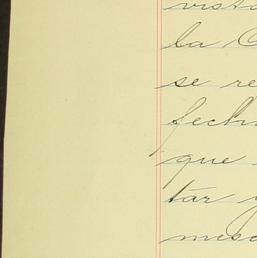 vista
la C
se re
fech
que
tar y
mesa